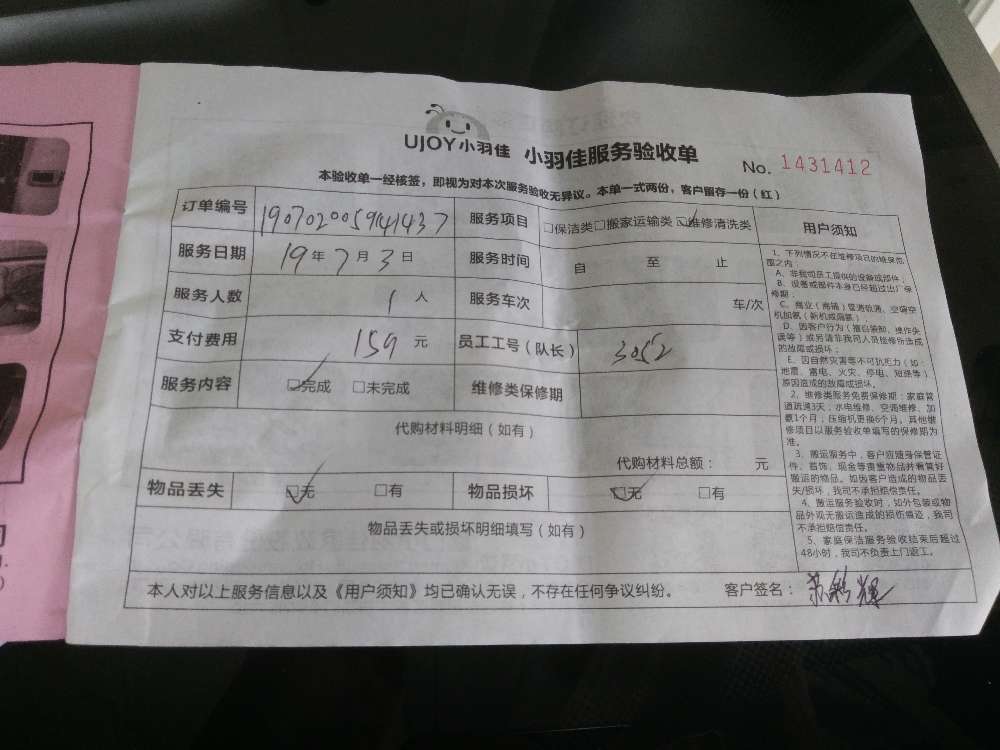 UJOY小羽佳 小羽佳服务验收单
No. 1431412
本验收单一经核签，即视为对本次服务验收无异议。本单一式两份，客户留存一份（红）
订单编号 190702005941437 服务项目 □保洁类□搬家运输类☑维修清洗类 用户须知
服务日期 19年7月3日 服务时间 自 至 止
服务人数 1人 服务车次 车/次
支付费用 159元 员工工号（队长） 3052
服务内容 ☑完成 □未完成 维修类保修期
代购材料明细（如有）
代购材料总额： 元
物品丢失 ☑无 □有 物品损坏 ☑无 □有
物品丢失或损坏明细填写（如有）
1、下列情况不在维修项目的维保范
围之内：
A、非我司员工提供的设备或部件；
B、设备或部件本身已经超过出厂保
修期；
C、商业（商铺）管道疏通、空调空
机加氟（新机或漏氟）
D、因客户行为（擅自装卸、操作失
误等）或另请非我司人员维修所造成
的故障或损坏；
E、因自然灾害等不可抗拒力（如：
地震、雷电、火灾、停电、短路等）
原因造成的故障或损坏。
2、维修类服务免费保修期：家庭管
道疏通3天；水电维修、空调维修、加
氟1个月；压缩机更换6个月。其他维
修项目以服务验收单填写的保修期为
准。
3、搬运服务中，客户应随身保管证
件、首饰、现金等贵重物品并看管好
搬运的物品。如因客户造成的物品丢
失/损坏，我司不承担赔偿责任。
4、搬运服务验收时，如外包装或物
品外观无搬运造成的损伤痕迹，我司
不承担赔偿责任。
5、家庭保洁服务验收结束后超过
48小时，我司不负责上门返工。
本人对以上服务信息以及《用户须知》均已确认无误，不存在任何争议纠纷。 客户签名：